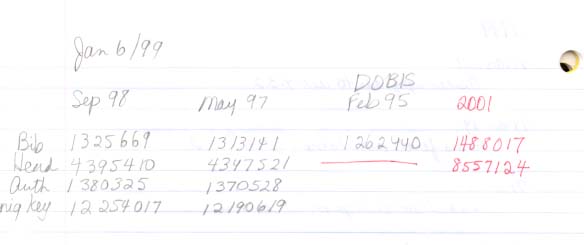 Jan 6/99
DOBIS
Sep 98 May 97 Feb 95 2001
Bib 1325669 1313141 1262440 1488017
Head 4395410 4347521 8557124
Auth 1380325 1370528
niq Key 12254017 12190619